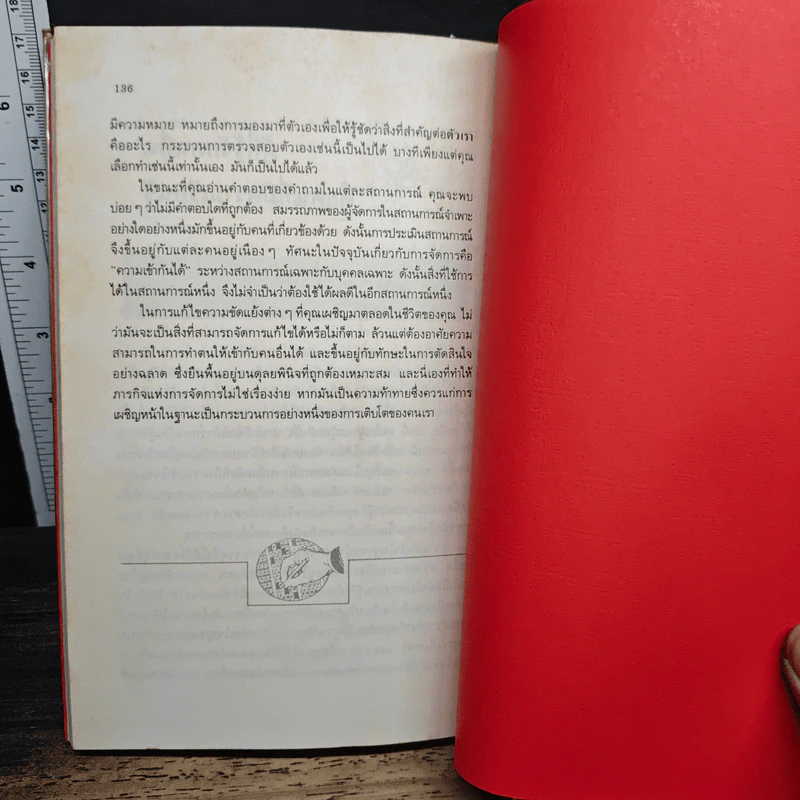 136
มีความหมาย หมายถึงการมองมาที่ตัวเองเพื่อให้รู้ชัดว่าสิ่งที่สำคัญต่อตัวเรา
คืออะไร กระบวนการตรวจสอบตัวเองเช่นนี้เป็นไปได้ บางทีเพียงแต่คุณ
เลือกทำเช่นนี้เท่านั้นเอง มันก็เป็นไปได้แล้ว
ในขณะที่คุณอ่านคำตอบของคำถามในแต่ละสถานการณ์ คุณจะพบ
บ่อย ๆ ว่าไม่มีคำตอบใดที่ถูกต้อง สมรรถภาพของผู้จัดการในสถานการณ์จำเพาะ
อย่างใดอย่างหนึ่งมักขึ้นอยู่กับคนที่เกี่ยวข้องด้วย ดังนั้นการประเมินสถานการณ์
จึงขึ้นอยู่กับแต่ละคนอยู่เนือง ๆ ทัศนะในปัจจุบันเกี่ยวกับการจัดการคือ
“ความเข้ากันได้” ระหว่างสถานการณ์เฉพาะกับบุคคลเฉพาะ ดังนั้นสิ่งที่ใช้การ
ได้ในสถานการณ์หนึ่ง จึงไม่จำเป็นว่าต้องใช้ได้ผลดีในอีกสถานการณ์หนึ่ง
ในการแก้ไขความขัดแย้งต่าง ๆ ที่คุณเผชิญมาตลอดในชีวิตของคุณ ไม่
ว่ามันจะเป็นสิ่งที่สามารถจัดการแก้ไขได้หรือไม่ก็ตาม ล้วนแต่ต้องอาศัยความ
สามารถในการทำตนให้เข้ากับคนอื่นได้ และขึ้นอยู่กับทักษะในการตัดสินใจ
อย่างฉลาด ซึ่งยืนพื้นอยู่บนดุลยพินิจที่ถูกต้องเหมาะสม และนี่เองที่ทำให้
ภารกิจแห่งการจัดการไม่ใช่เรื่องง่าย หากมันเป็นความท้าทายซึ่งควรแก่การ
เผชิญหน้าในฐานะเป็นกระบวนการอย่างหนึ่งของการเติบโตของคนเรา
18
17
16
15
14
13
12
11
6
5
4
3